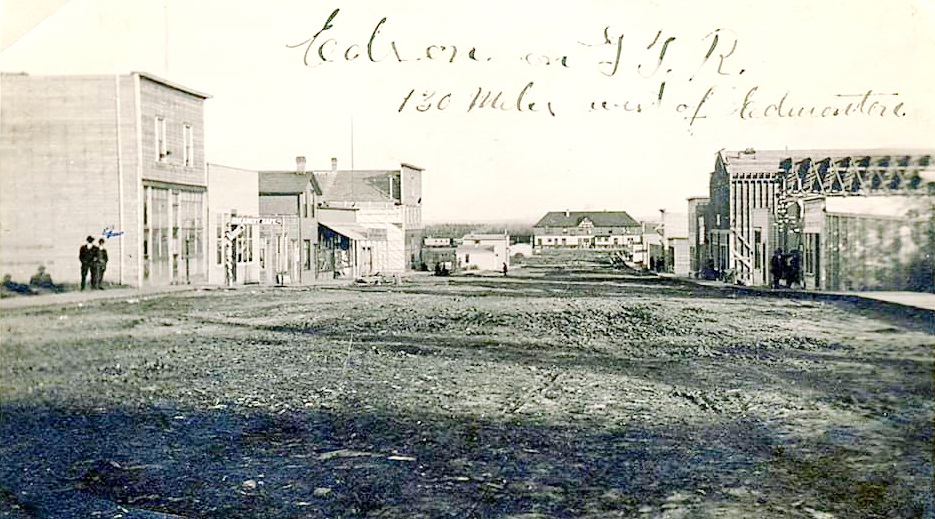 Edson on G T R.
130 Miles west of Edmonton.